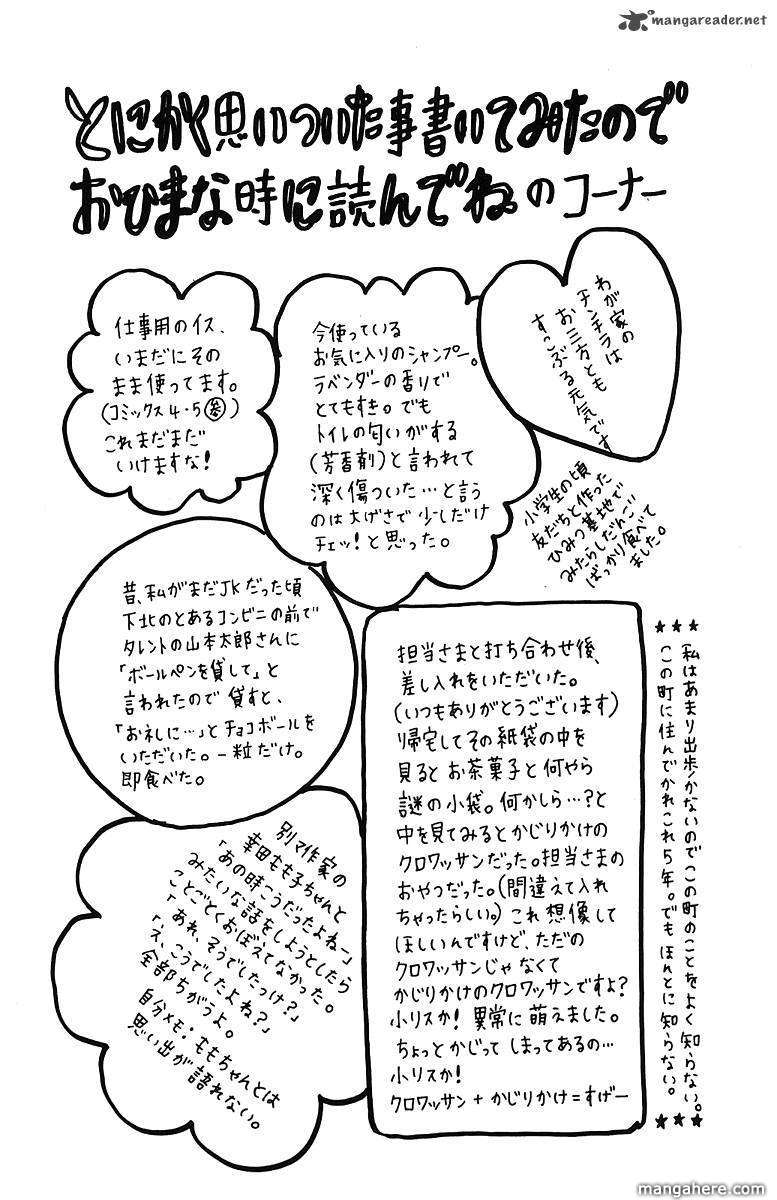 mangareader.net
とにかく思いついた事書いてみたので
おひまな時に読んでね。のコーナー
仕事用のイス、
いまだにその
まま使ってます。
(コミックス4・5参)
これまだまだ
いけますな!
今使っている
お気に入りのシャンプー。
ラベンダーの香りで
とてもすき。でも
トイレの匂いがする
(芳香剤)と言われて
深く傷ついた…と言う
のは大げさで少しだけ
チェッ!と思った。
わが家の
チンチラは
お三方とも
すこぶる元気です
小学生の頃
友だちと作った
ひみつ基地で
みたらしだんご
ばっかり食べて
ました。
昔、私がまだJKだった頃
下北のとあるコンビニの前で
タレントの山本太郎さんに
「ボールペンを貸して」と
言われたので貸すと、
「お礼しに…」とチョコボールを
いただいた。一粒だけ。
即食べた。
担当さまと打ち合わせ後、
差し入れをいただいた。
(いつもありがとうございます)
帰宅してその紙袋の中を
見るとお茶菓子と何やら
謎の小袋。何かしら…?と
中を見てみるとかじりかけの
クロワッサンだった。担当さまの
おやつだった。(間違えて入れ
ちゃったらしい。)これ想像して
ほしいんですけど、ただの
クロワッサンじゃなくて
かじりかけのクロワッサンですよ?
小リスか!異常に萌えました。
ちょっとかじってしまってあるの…
小リスか!
クロワッサン+かじりかけ=すげー
★★★私はあまり出歩かないのでこの町のことをよく知らない。
この町に住んでかれこれ5年。でもほんとに知らない。★★★
別マ作家の
幸田もも子ちゃんと
「あの時こうだったよねー」
みたいな話をしようとしたら
ことごとくおぼえてなかった。
「あれ、そうでしたっけ?」
「え、こうでしたよね?」
全部ちがうよ。
自分メモ・ももちゃんとは
思い出が語れない。
mangahere.com